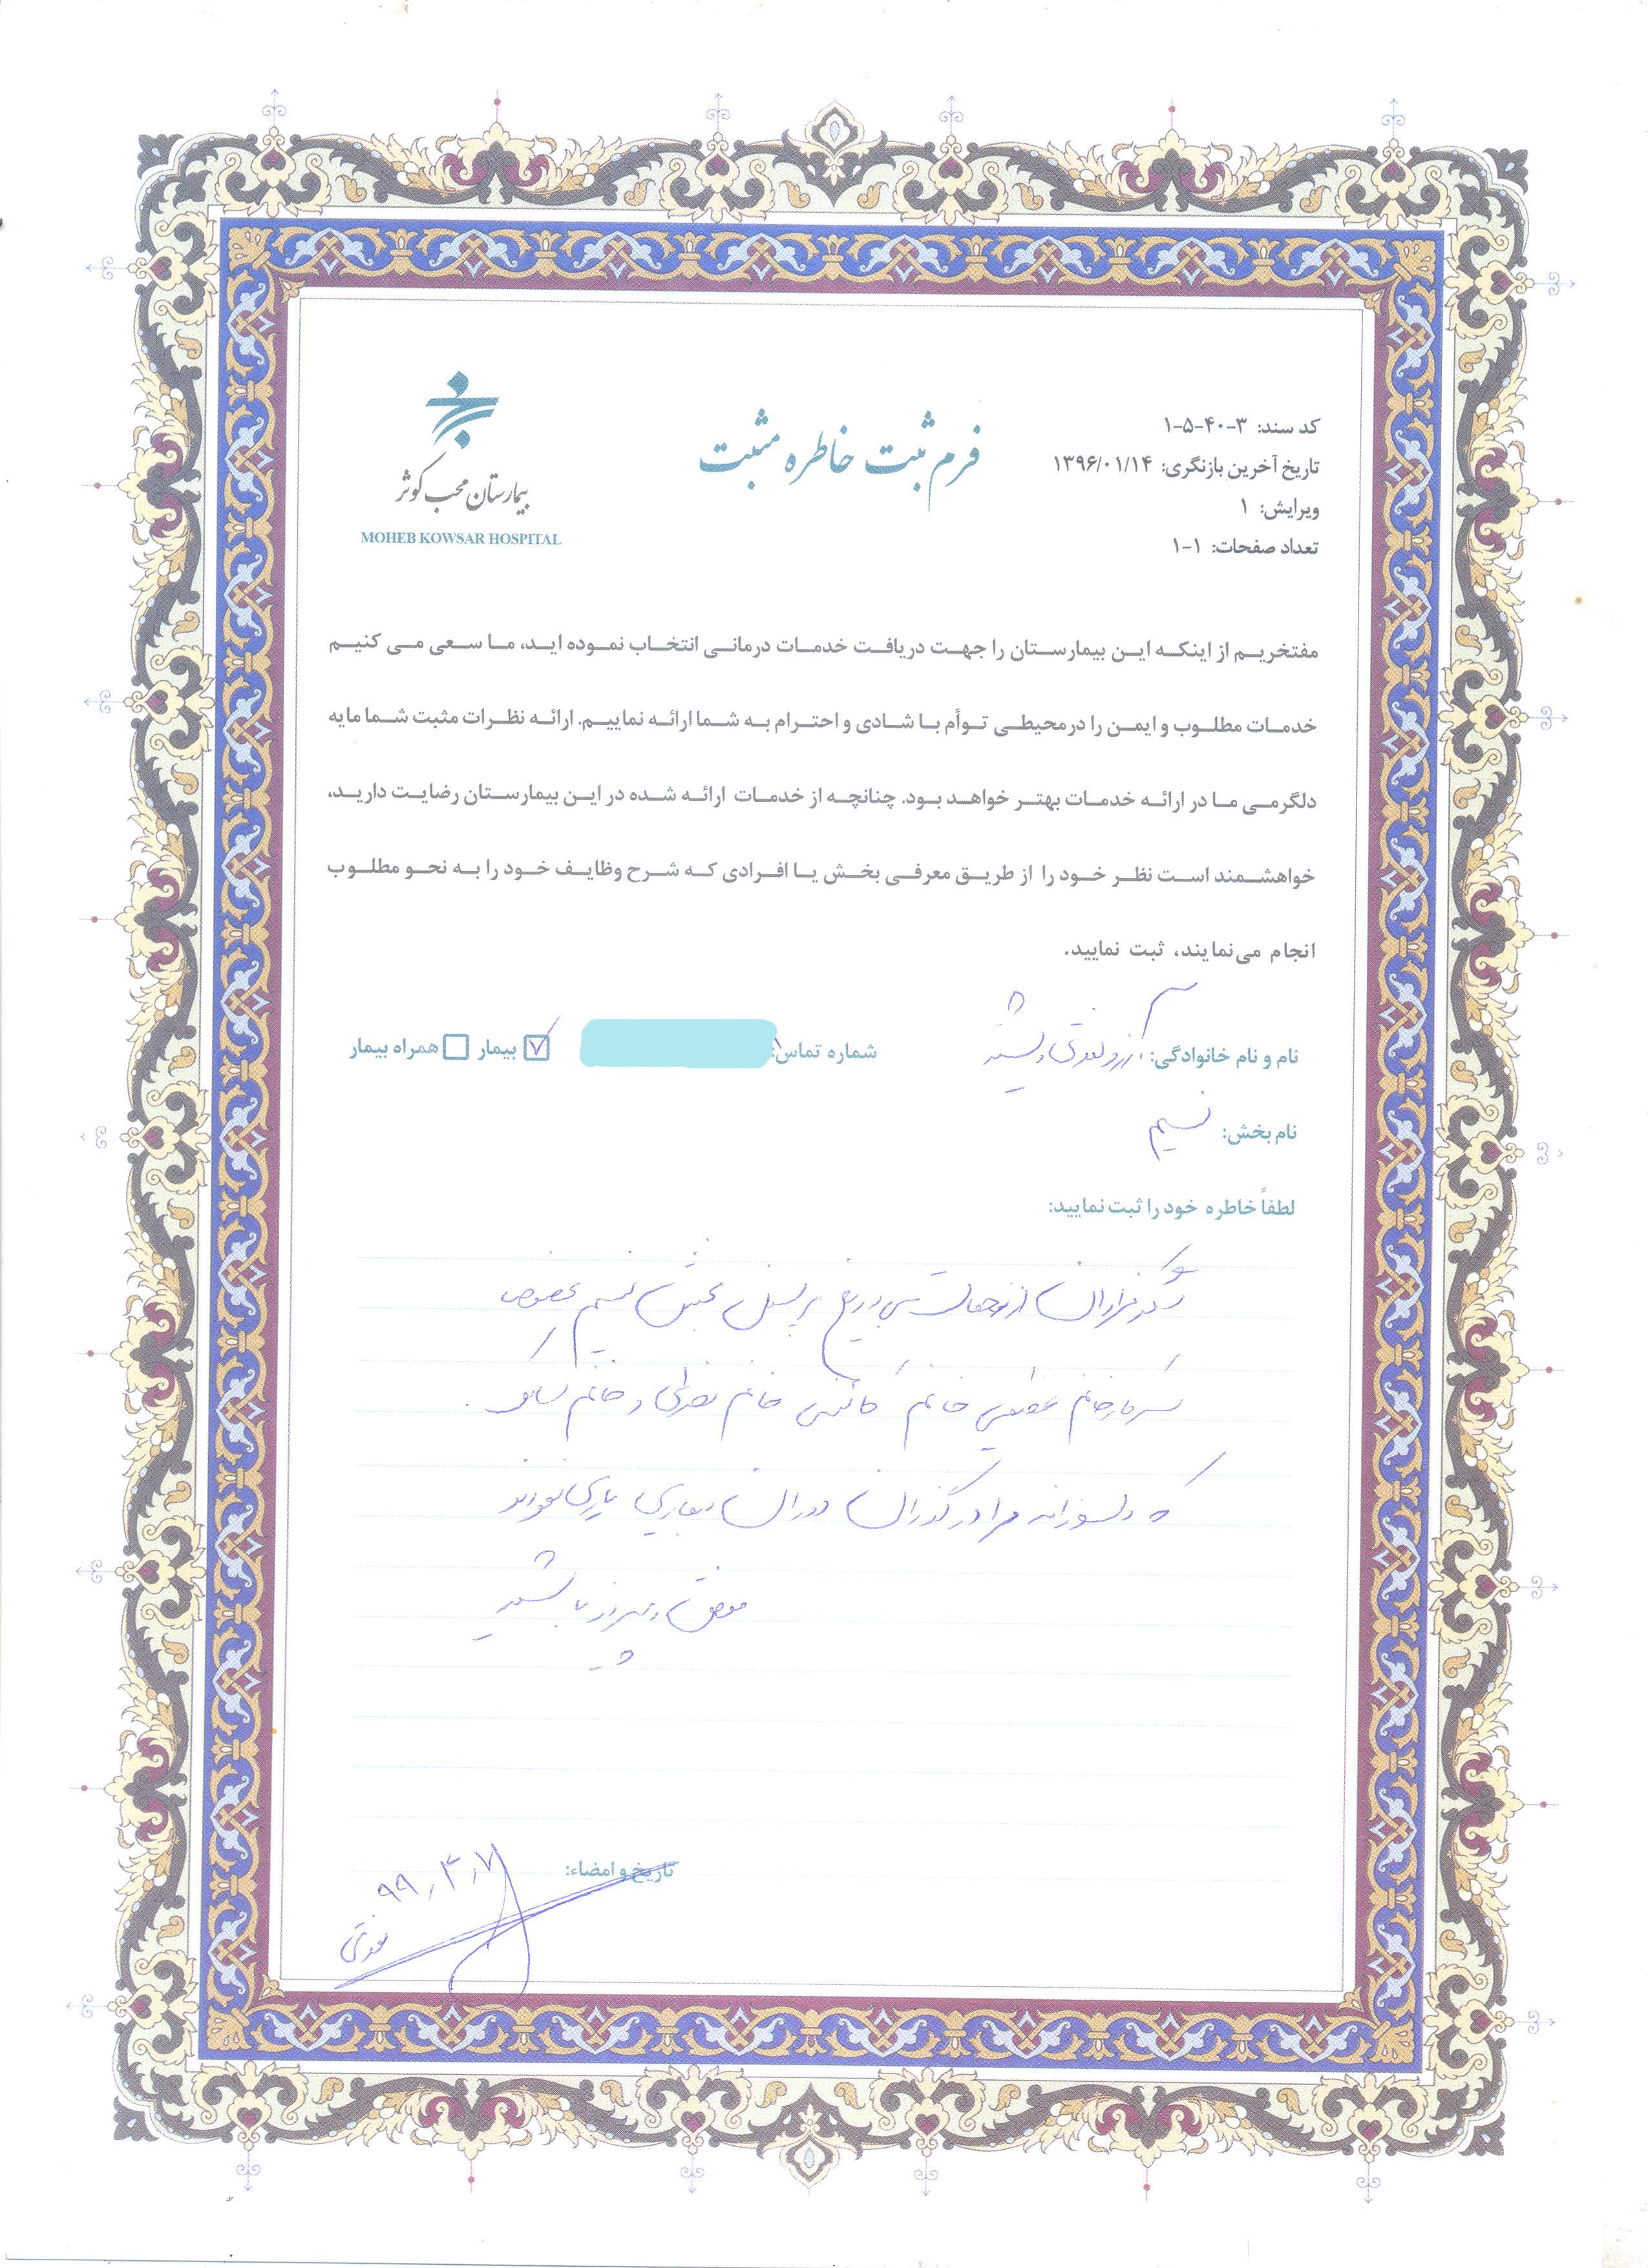 کد سند: ۳-۴۰-۵-۱
تاریخ آخرین بازنگری: ۱۳۹۶/۰۱/۱۴
ویرایش: ۱
تعداد صفحات: ۱-۱
فرم ثبت خاطره مثبت
بیمارستان محب کوثر
MOHEB KOWSAR HOSPITAL
مفتخریم از اینکه این بیمارستان را جهت دریافت خدمات درمانی انتخاب نموده اید، ما سعی می کنیم
خدمات مطلوب و ایمن را در محیطی توأم با شادی و احترام به شما ارائه نماییم. ارائه نظرات مثبت شما مایه
دلگرمی ما در ارائه خدمات بهتر خواهد بود. چنانچه از خدمات ارائه شده در این بیمارستان رضایت دارید،
خواهشمند است نظر خود را از طریق معرفی بخش یا افرادی که شرح وظایف خود را به نحو مطلوب
انجام می‌نمایند، ثبت نمایید.
نام و نام خانوادگی: شماره تماس: بیمار همراه بیمار
نام بخش: نسیم
لطفاً خاطره خود را ثبت نمایید:
تشکر فراوان از زحمات بی دریغ پرسنل بخش نسیم بخصوص
سرکار خانم خانم خانم و خانم
که دلسوزانه مرا در گذران دوران بیماری یاری نمودند
موفق و پیروز باشید
تاریخ و امضاء:
۹۹،۴،۷